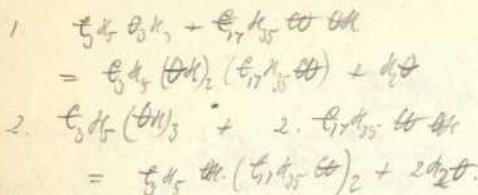 1 C₃H₅ O₃H₃ + C₁₇H₃₅ CO OH
= C₃H₅ (OH)₂ (C₁₇H₃₅ COO) + H₂O
2. C₃H₅ (OH)₃ + 2. C₁₇H₃₅ CO OH
= C₃H₅ OH. (C₁₇H₃₅ COO)₂ + 2H₂O.